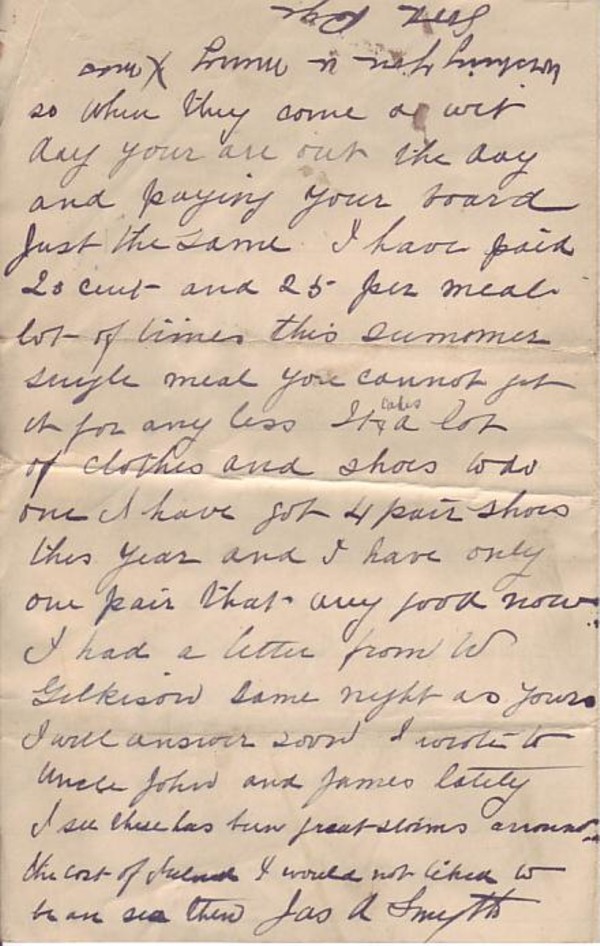 so when they come a wet
day your are out the day
and paying your board
Just the same I have paid
20 cent and 25 per meal
lot of times this summer
single meal you cannot get
it for any less It takes a lot
of clothes and shoes to do
one I have got 4 pair shoes
this year and I have only
one pair that any good now
I had a letter from W
Gilkison same night as yours
I will answer soon I wrote to
Uncle John and James lately
I see there has been great storms around
the cost of Ireland I would not liked to
be on sea then Jas A Smyth